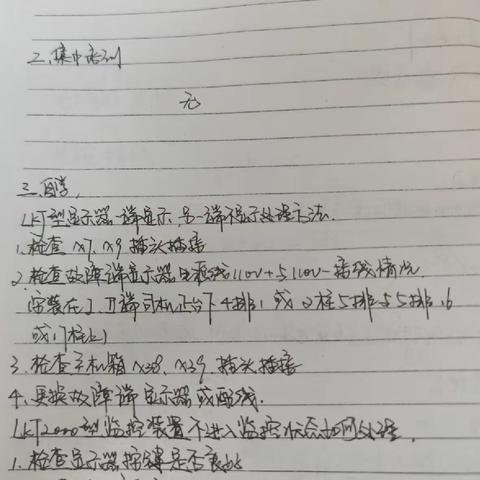 二、集中培训
无
三、自学
LKJ型显示器一端显示,另一端不显示处理方法.
1.检查X7,X9插头插接
2.检查故障端显示器电源线110V+与110V-接线情况.
安装在Ⅰ、Ⅱ端司机正台下4排1或2柱5排与5排16
或17柱上)
3.检查主机箱X38、X39.插头插接
4.更换故障端显示器或配线.
LKJ2000型监控装置不进入监控状态如何处理.
1.检查显示器按键是否良好